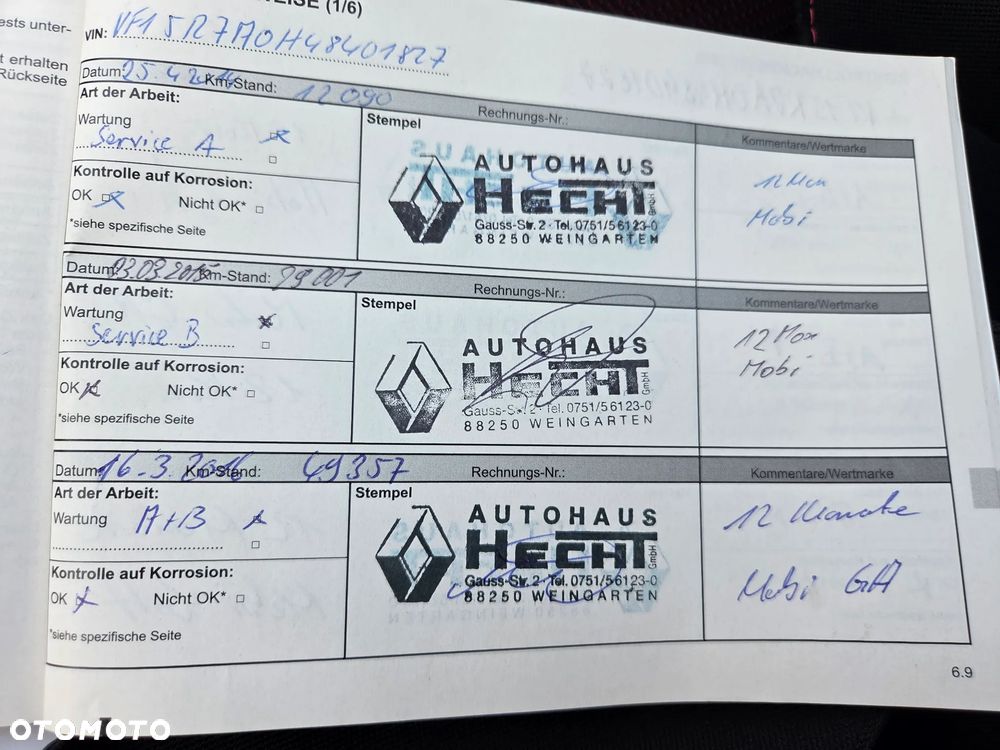 EISE (1/6)
ests unter-
t erhalten
Rückseite
VIN: VF15R7A0H48401827
Datum: 25.4.2014 Km-Stand: 12090
Art der Arbeit:
Rechnungs-Nr.:
Kommentare/Wertmarke
Wartung
Service A
Kontrolle auf Korrosion:
OK Nicht OK*
*siehe spezifische Seite
Stempel
AUTOHAUS
HECHT GmbH
Gauss-Str. 2 · Tel. 0751/56123-0
88250 WEINGARTEN
12 Mon
Mobi
Datum: 03.03.2015 Km-Stand: 29001
Art der Arbeit:
Rechnungs-Nr.:
Kommentare/Wertmarke
Wartung
Service B
Kontrolle auf Korrosion:
OK Nicht OK*
*siehe spezifische Seite
Stempel
AUTOHAUS
HECHT GmbH
Gauss-Str. 2 · Tel. 0751/56123-0
88250 WEINGARTEN
12 Mon
Mobi
Datum: 16.3.2016 Km-Stand: 49357
Rechnungs-Nr.:
Kommentare/Wertmarke
Art der Arbeit:
Wartung A+B
Kontrolle auf Korrosion:
OK Nicht OK*
*siehe spezifische Seite
Stempel
AUTOHAUS
HECHT GmbH
Gauss-Str. 2 · Tel. 0751/56123-0
88250 WEINGARTEN
12 Monate
Mobi GA
6.9
OTOMOTO